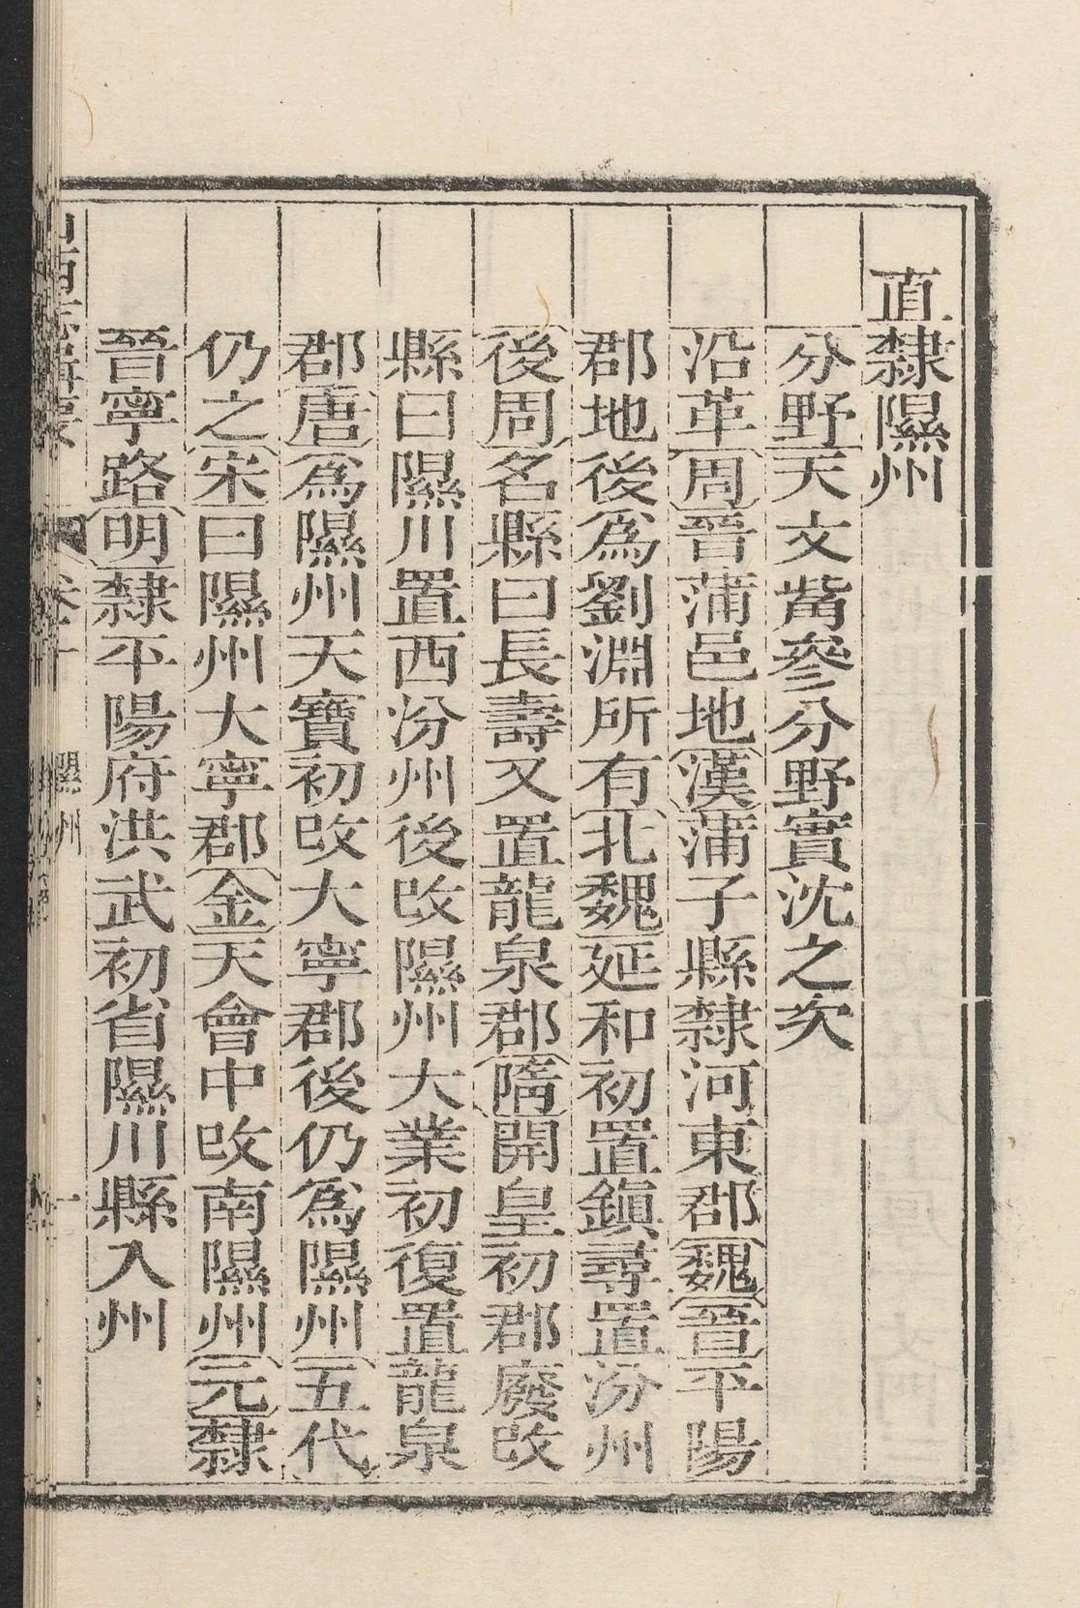 直隸隰州
分野天文觜參分野實沈之次
沿革周晉蒲邑地漢蒲子縣隸河東郡魏晉平陽
郡地後爲劉淵所有北魏延和初置鎭尋置汾州
後周名縣曰長壽又置龍泉郡隋開皇初郡廢改
縣曰隰川置西汾州後改隰州大業初復置龍泉
郡唐爲隰州天寶初改大寧郡後仍爲隰州五代
仍之宋曰隰州大寧郡金天會中改南隰州元隸
晉寧路明隸平陽府洪武初省隰川縣入州
山西志輯要 卷十 隰州 一